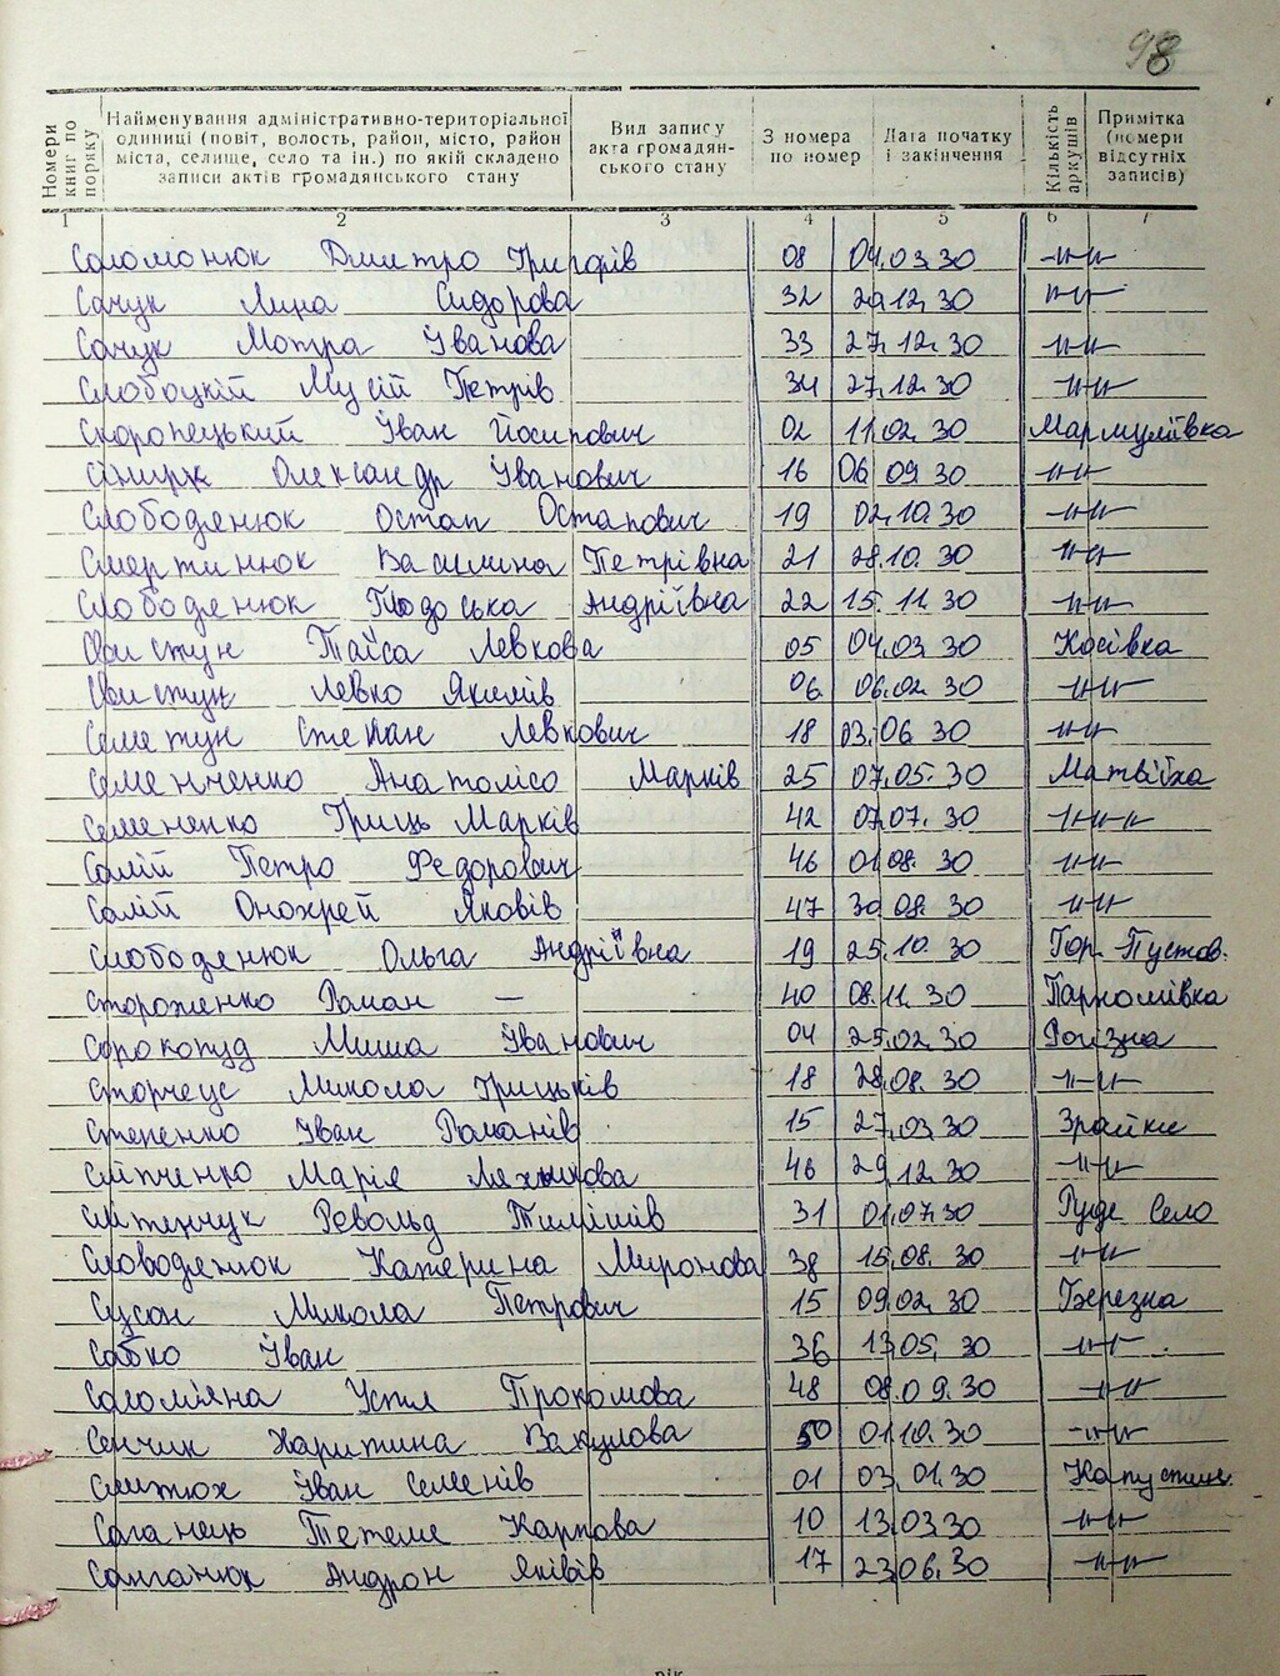 98
Номери книг по поряку
Найменування адміністративно-територіальної одиниці (повіт, волость, район, місто, район міста, селище, село та ін.) по якій складено записи актів громадянського стану
Вид запису акта громадян- ського стану
З номера по номер
Дата початку і закінчення
Кількість аркушів
Примітка (номери відсутніх записів)
1 2 3 4 5 6 7
Соломонюк Дмитро Григорів 08 04.03.30 -//-
Сачук Лина Сидорова 32 20.12.30 -//-
Сачук Мотря Іванова 33 27.12.30 -//-
Слобоцкій Мусій Петрів 34 27.12.30 -//-
Скоропецький Іван Йосипович 02 11.02.30 Мармуліївка
Олександр Іванович 16 06.09.30 -//-
Слободенюк Остап Остапович 19 02.10.30 -//-
Смертинюк Василина Петрівна 21 28.10.30 -//-
Слободенюк Тодоська Андріївна 22 15.11.30 -//-
Свистун Таїса Левкова 05 04.03.30 Косівка
Свистун Левко Якимів 06 06.02.30 -//-
Семетун Степан Левкович 18 03.06.30 -//-
Семенченко Анатолісо Марків 25 07.05.30 Матвіїха
Семененко Гриць Марків 42 07.07.30 -//-
Салій Петро Федорович 46 01.08.30 -//-
Салій Онохрей Яковів 47 30.08.30 -//-
Слободенюк Ольга Андріївна 19 25.10.30 Гор. Пустов.
Стороженко Роман — 40 08.11.30 Пархомівка
Сорокопуд Миша Іванович 04 25.02.30 Рогізна
Сторчеус Микола Грицьків 18 28.08.30 -//-
Степенко Іван Романів 15 27.03.30 Зрайки
Сліпченко Марія 46 29.12.30 -//-
Револьд Тимішів 31 01.07.30 Руде Село
Словоденюк Катерина Миронова 38 15.08.30 -//-
Сусон Микола Петрович 15 09.02.30 Березна
Сабко Іван 36 13.05.30 -//-
Солом'яна Устя Прокомова 48 08.09.30 -//-
Сенчик Харитина Вакулова 50 01.10.30 -//-
Смітюх Іван Семенів 01 03.01.30
Саганець Тетеме Карпова 10 13.03.30 -//-
Салганюк Андрон Яківів 17 23.06.30 -//-
рік